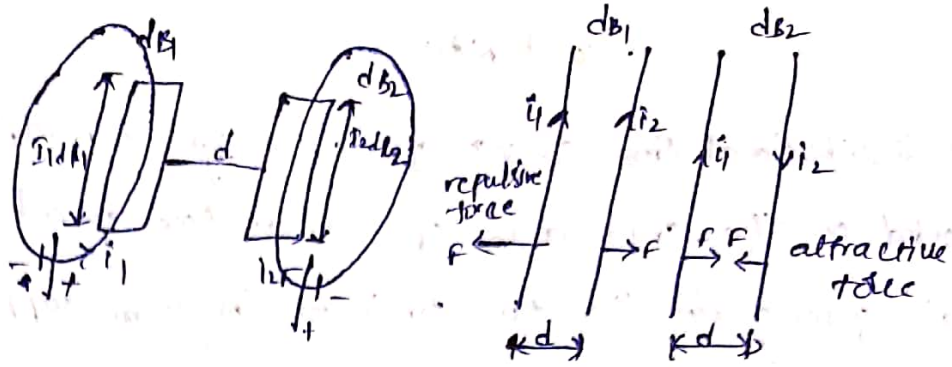 dB₁
dB₂
I₁dl₁
d
I₂dl₂
- + i₁
I₂ -
+
dB₁
dB₂
i₁
i₂
i₁
i₂
repulsive
force
F
F
F F
attractive
force
d
d